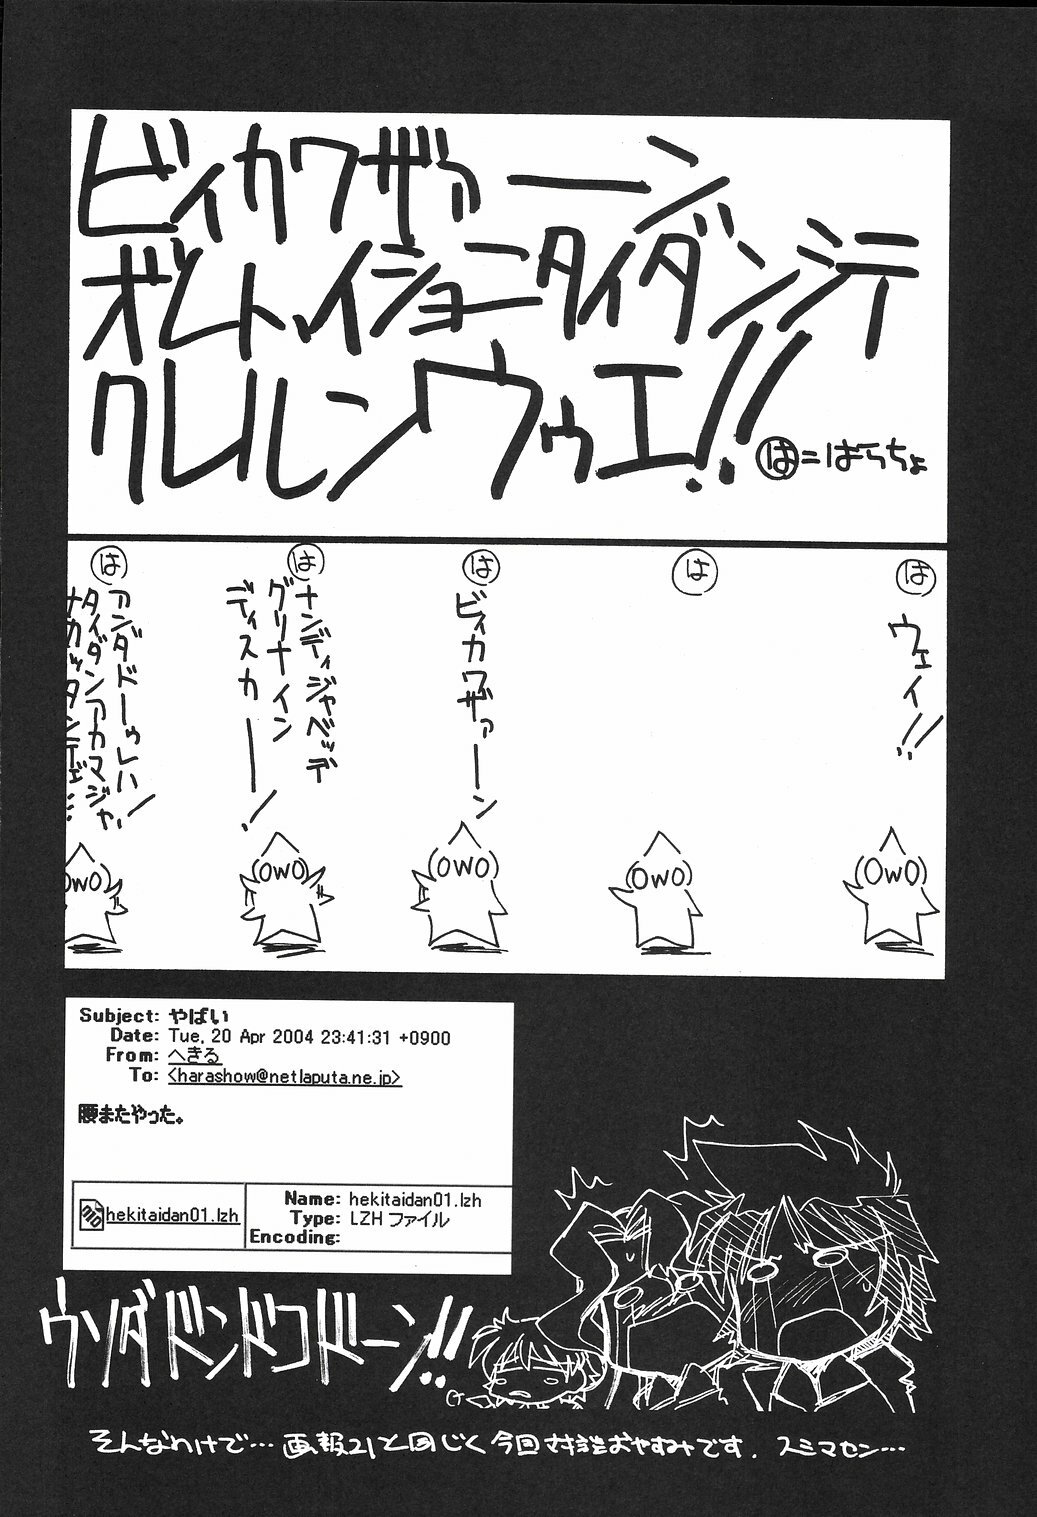 ビィカワザァーン
オレトィイショニタイダンシテ
クレルンウゥエ!!
は=はらちょ
は
ウェイ!!
は
は
ビィカワザァーン
は
ナンディジャベッデ
グリナイン
ディスカー!
は
アンダドーゥレハ!
タイダンアカマジャ、
ナカッタンディェ…
OwO
OwO
OwO
OwO
OwO
Subject: やばい
Date: Tue, 20 Apr 2004 23:41:31 +0900
From: へきる
To: <harashow@netlaputa.ne.jp>
腰またやった。
hekitaidan01.lzh
Name: hekitaidan01.lzh
Type: LZH ファイル
Encoding:
ウソダドンドコドーン!!
そんなわけで…画報21と同じく今回対談おやすみです. スミマセン…